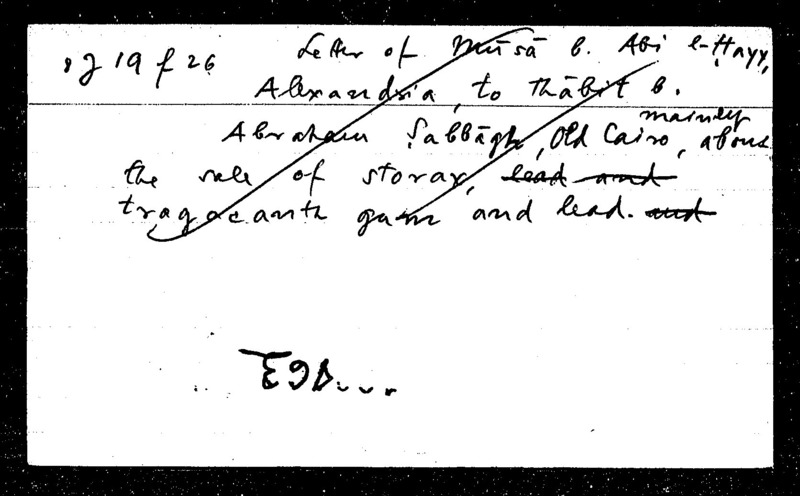 8 J 19 f 26 Letter of Mūsā b. Abi l-Ḥayy,
Alexandria, to Thābit b.
Abraham Ṣabbāgh, Old Cairo, mainly about
the sale of storax, lead and
tragacanth gum and lead. and